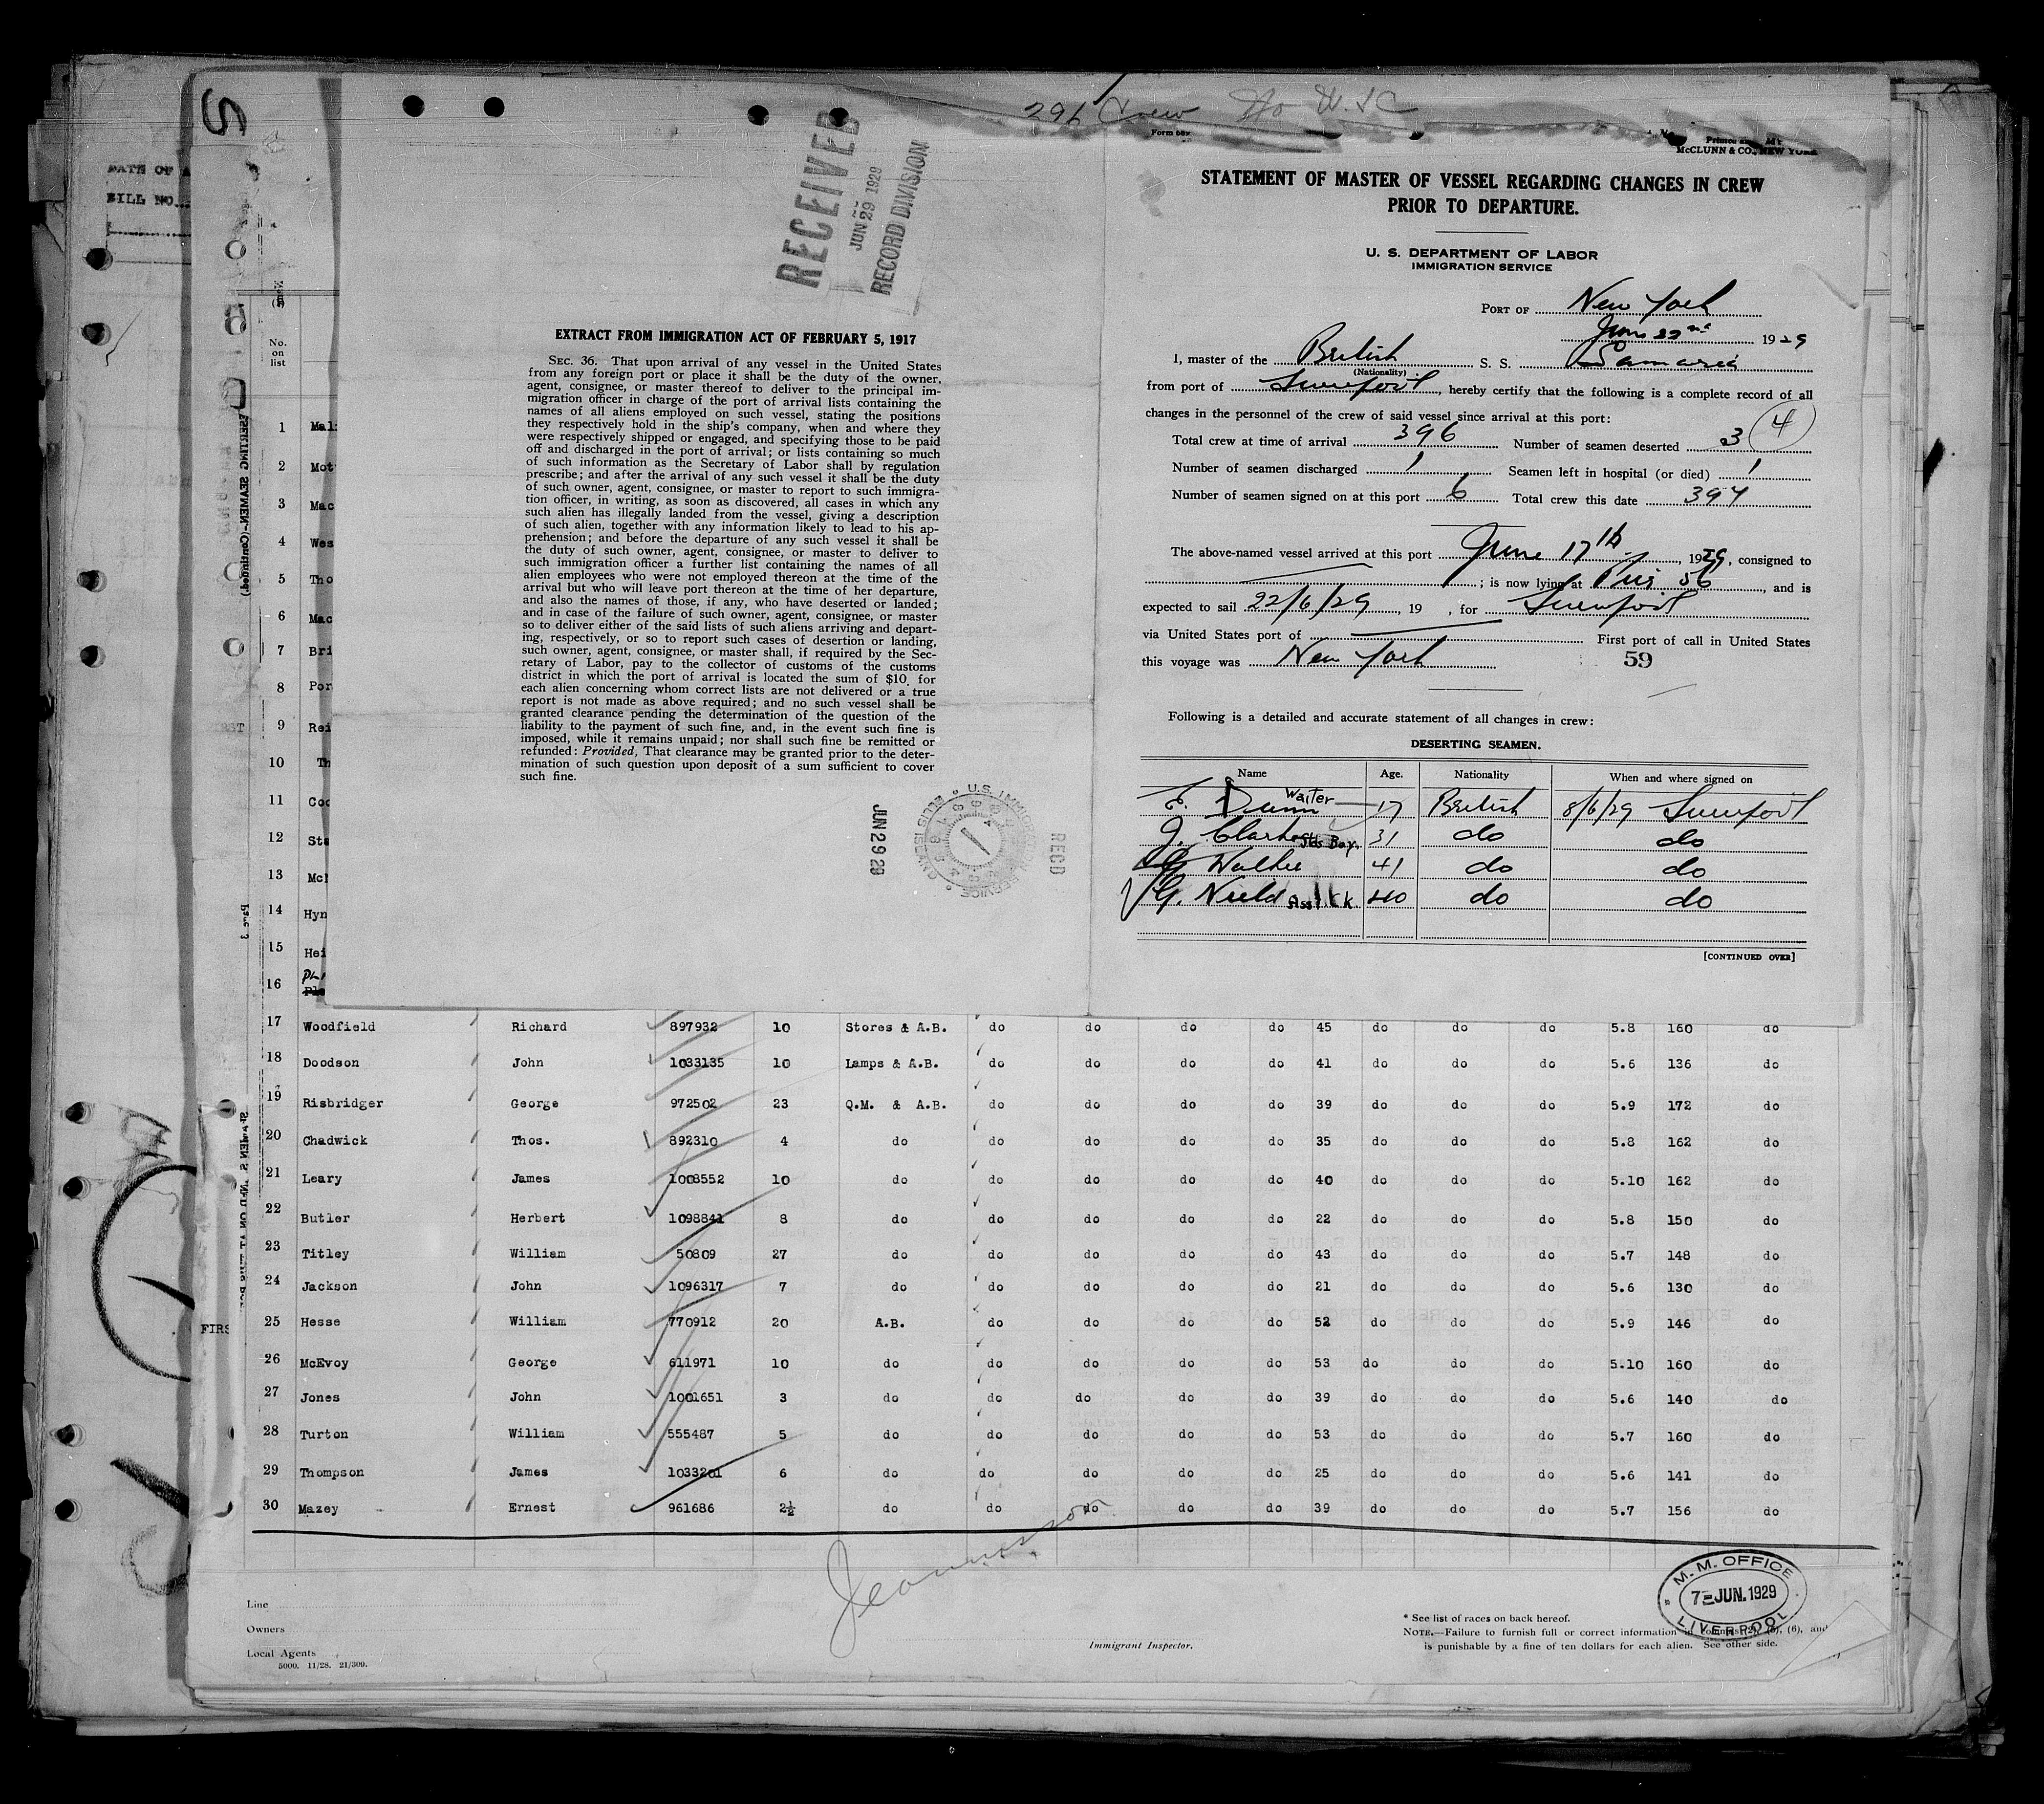 S
296 Crew No U.S.C
DATE OF A
BILL NO.
RECEIVED
JUN 29 1929
RECORD DIVISION
McCLUNN & CO., NEW YORK
STATEMENT OF MASTER OF VESSEL REGARDING CHANGES IN CREW
PRIOR TO DEPARTURE.
U. S. DEPARTMENT OF LABOR
IMMIGRATION SERVICE
PORT OF New York
June 22nd 1929
I, master of the British S. S. Samaria
(Nationality)
from port of Liverpool, hereby certify that the following is a complete record of all
changes in the personnel of the crew of said vessel since arrival at this port:
Total crew at time of arrival 396 Number of seamen deserted 3 (4)
Number of seamen discharged 1 Seamen left in hospital (or died) 1
Number of seamen signed on at this port 6 Total crew this date 397
The above-named vessel arrived at this port June 17th, 1929, consigned to
; is now lying at Pier 56, and is
expected to sail 22/6/29, 19 , for Liverpool
via United States port of First port of call in United States
this voyage was New York 59
Following is a detailed and accurate statement of all changes in crew:
DESERTING SEAMEN.
Name Age. Nationality When and where signed on
E. Dunn Waiter 17 British 8/6/29 Liverpool
J. Clarke Stds Boy. 31 do do
G. Walker 41 do do
G. Nield Asst. Ck 40 do do
[CONTINUED OVER]
EXTRACT FROM IMMIGRATION ACT OF FEBRUARY 5, 1917
SEC. 36. That upon arrival of any vessel in the United States
from any foreign port or place it shall be the duty of the owner,
agent, consignee, or master thereof to deliver to the principal im-
migration officer in charge of the port of arrival lists containing the
names of all aliens employed on such vessel, stating the positions
they respectively hold in the ship's company, when and where they
were respectively shipped or engaged, and specifying those to be paid
off and discharged in the port of arrival; or lists containing so much
of such information as the Secretary of Labor shall by regulation
prescribe; and after the arrival of any such vessel it shall be the duty
of such owner, agent, consignee, or master to report to such immigra-
tion officer, in writing, as soon as discovered, all cases in which any
such alien has illegally landed from the vessel, giving a description
of such alien, together with any information likely to lead to his ap-
prehension; and before the departure of any such vessel it shall be
the duty of such owner, agent, consignee, or master to deliver to
such immigration officer a further list containing the names of all
alien employees who were not employed thereon at the time of the
arrival but who will leave port thereon at the time of her departure,
and also the names of those, if any, who have deserted or landed;
and in case of the failure of such owner, agent, consignee, or master
so to deliver either of the said lists of such aliens arriving and depart-
ing, respectively, or so to report such cases of desertion or landing,
such owner, agent, consignee, or master shall, if required by the Sec-
retary of Labor, pay to the collector of customs of the customs
district in which the port of arrival is located the sum of $10 for
each alien concerning whom correct lists are not delivered or a true
report is not made as above required; and no such vessel shall be
granted clearance pending the determination of the question of the
liability to the payment of such fine, and, in the event such fine is
imposed, while it remains unpaid; nor shall such fine be remitted or
refunded: Provided, That clearance may be granted prior to the deter-
mination of such question upon deposit of a sum sufficient to cover
such fine.
JUN 29 29
U.S. IMMIGRATION SERVICE ELLIS ISLAND
REC'D
No. on list
1 Mal
2 Mot
3 Mac
4 Wes
5 Tho
6 Mac
7 Bri
8 Por
9 Rei
10 Th
11 Coo
12 Sta
13 McN
14 Hyn
15 Hei
16
17 Woodfield Richard 897932 10 Stores & A.B. do do do do 45 do do do 5.8 160 do
18 Doodson John 1033135 10 Lamps & A.B. do do do do 41 do do do 5.6 136 do
19 Risbridger George 972502 23 Q.M. & A.B. do do do do 39 do do do 5.9 172 do
20 Chadwick Thos. 892310 4 do do do do do 35 do do do 5.8 162 do
21 Leary James 1008552 10 do do do do do 40 do do do 5.10 162 do
22 Butler Herbert 1098841 8 do do do do do 22 do do do 5.8 150 do
23 Titley William 50809 27 do do do do do 43 do do do 5.7 148 do
24 Jackson John 1096317 7 do do do do do 21 do do do 5.6 130 do
25 Hesse William 770912 20 A.B. do do do do 52 do do do 5.9 146 do
26 McEvoy George 611971 10 do do do do do 53 do do do 5.10 160 do
27 Jones John 1001651 3 do do do do do 39 do do do 5.6 140 do
28 Turton William 555487 5 do do do do do 53 do do do 5.7 160 do
29 Thompson James 1033201 6 do do do do do 25 do do do 5.6 141 do
30 Mazey Ernest 961686 2½ do do do do do 39 do do do 5.7 156 do
Line
Owners
Local Agents
5000. 11/28. 21/309.
Immigrant Inspector.
* See list of races on back hereof.
NOTE.—Failure to furnish full or correct information in columns (2), (5), (6), and
is punishable by a fine of ten dollars for each alien. See other side.
M. M. OFFICE
7 JUN. 1929
LIVERPOOL